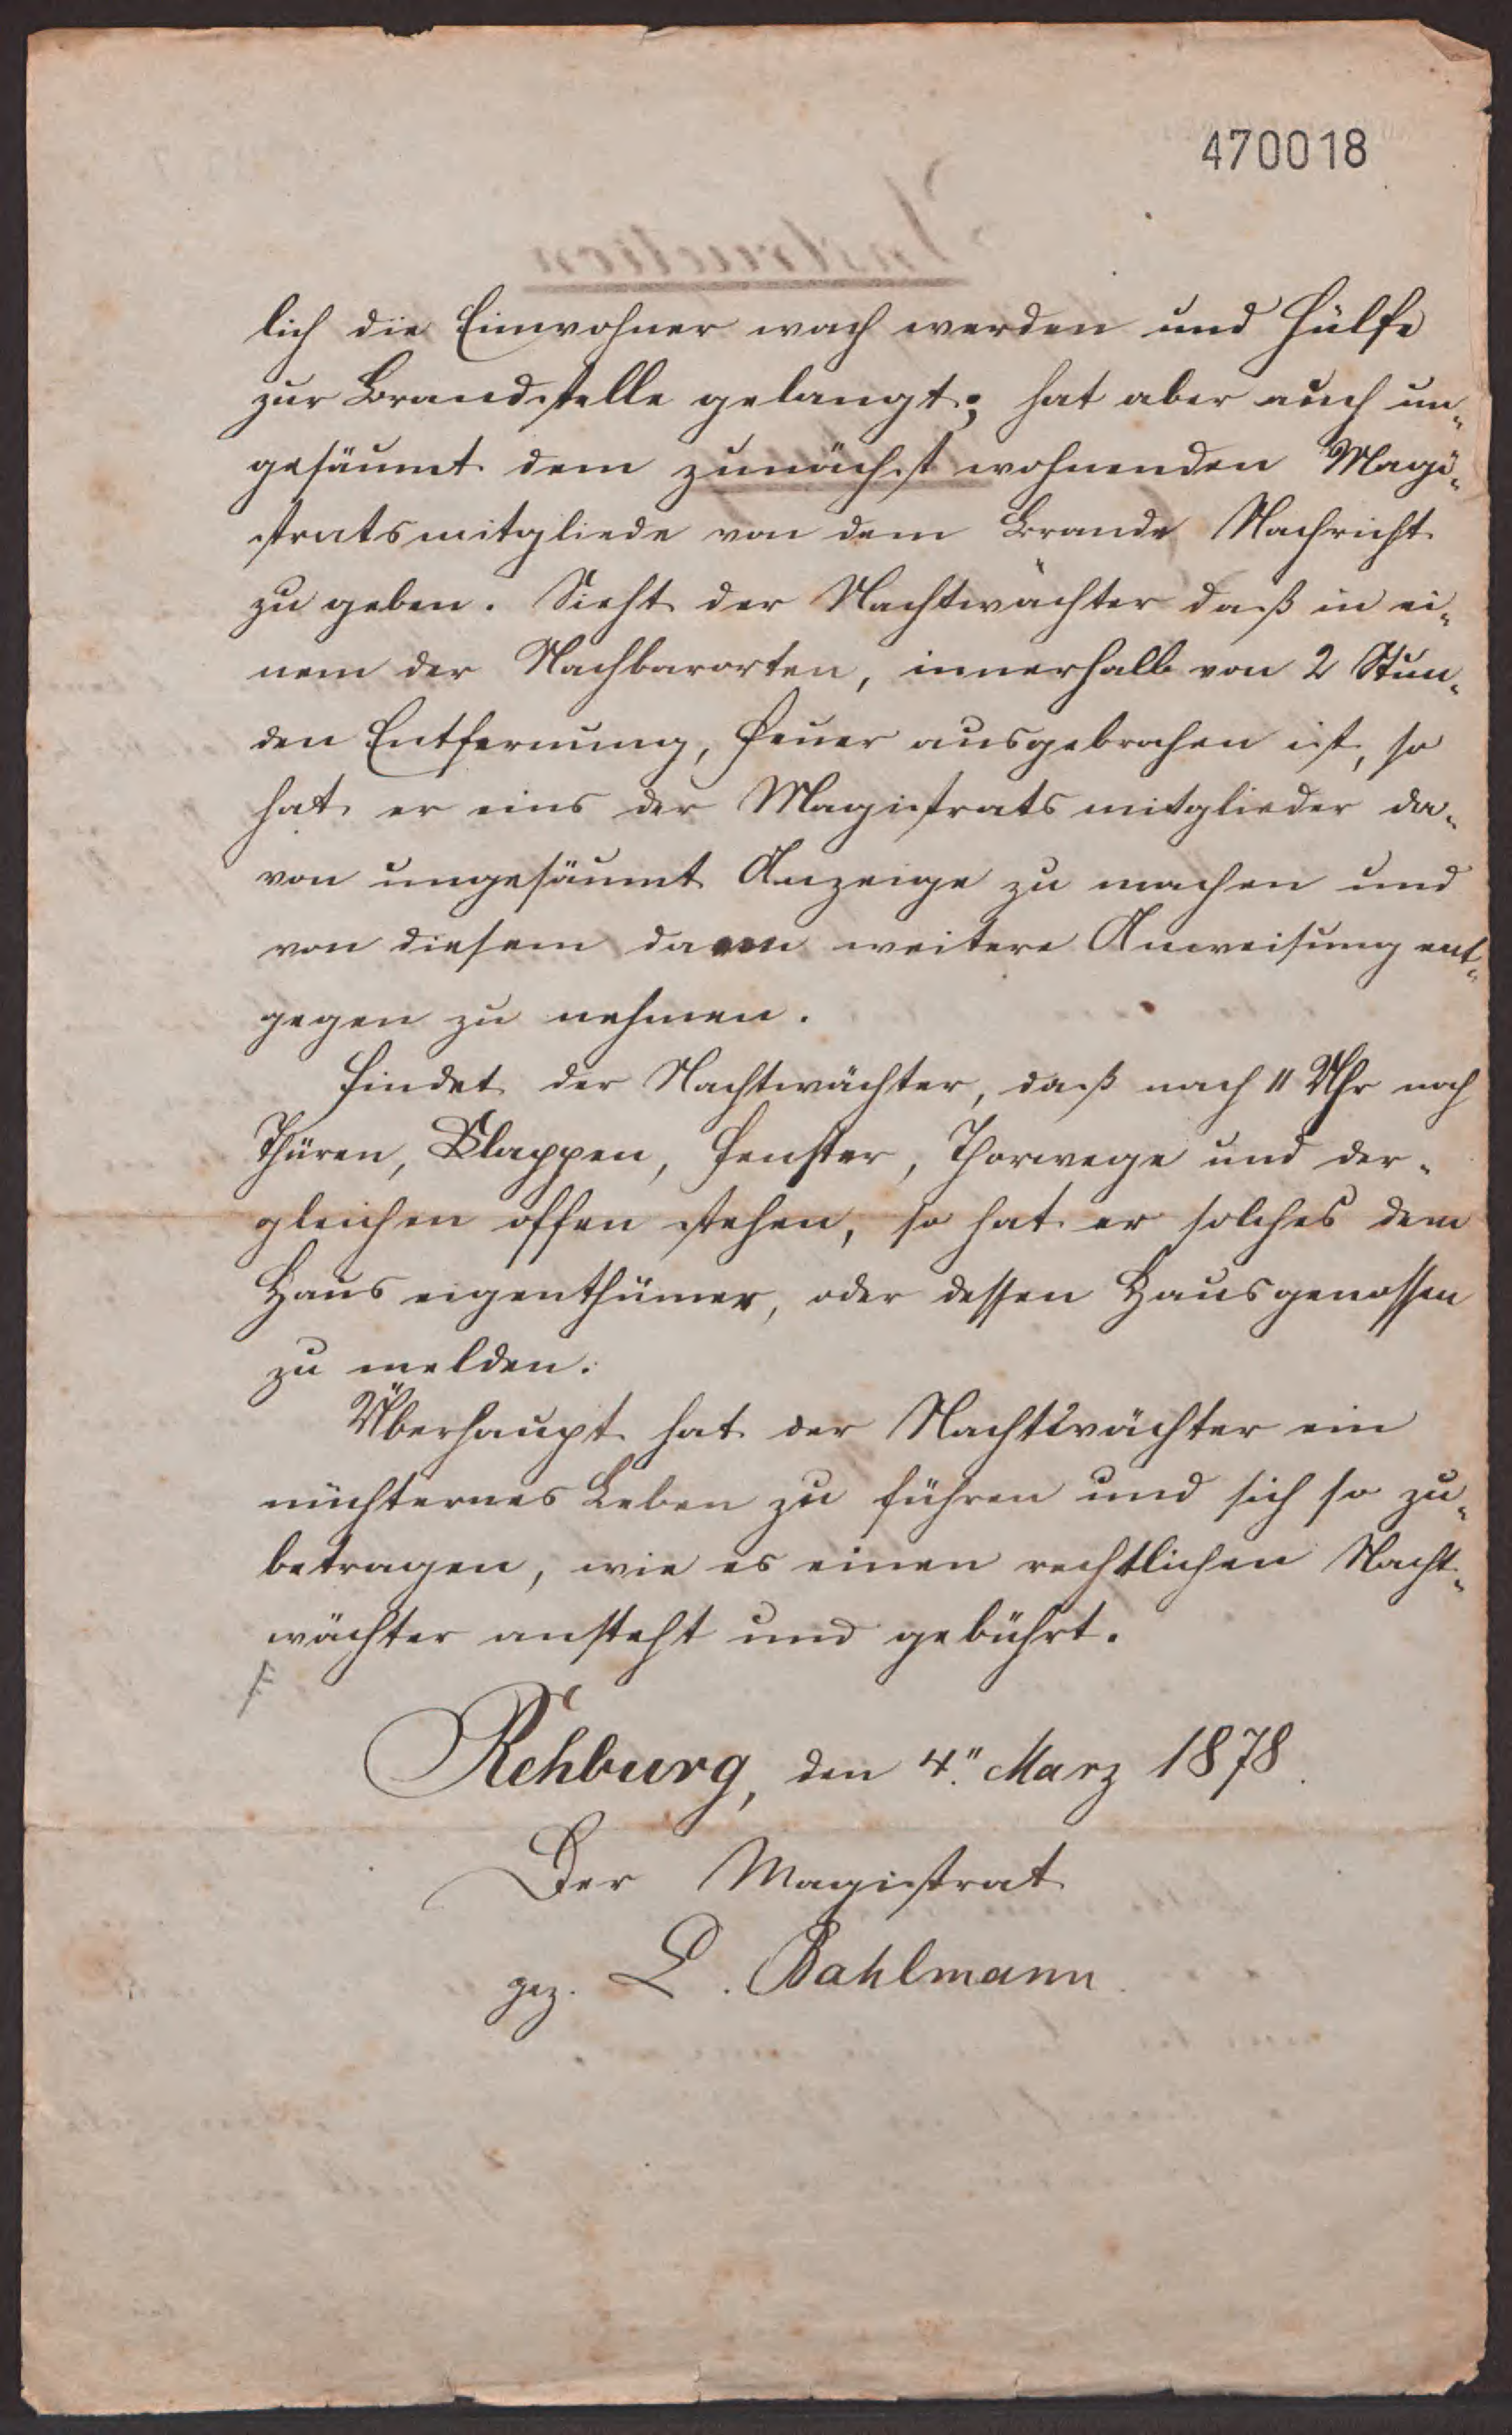 470018
lich die Einwohner wach werden und Hülfe
zur Brandstelle gelangt; hat aber auch un-
gesäumt dem zunächst wohnenden Magi-
stratsmitgliede von dem Brande Nachricht
zu geben. Sieht der Nachtwächter daß in ei-
nem der Nachbarorten, innerhalb von 2 Stun-
den Entfernung, Feuer ausgebrochen ist, so
hat er eins der Magistratsmitglieder da-
von ungesäumt Anzeige zu machen und
von diesem dann weitere Anweisung ent-
gegen zu nehmen.
Findet der Nachtwächter, daß nach 11 Uhr noch
Thüren, Klappen, Fenster, Thorwege und der-
gleichen offen stehen, so hat er solches dem
Hauseigenthümer, oder dessen Hausgenossen
zu melden.
Überhaupt hat der Nachtwächter ein
nüchternes Leben zu führen und sich so zu-
betragen, wie es einen rechtlichen Nacht-
wächter ansteht und gebührt.
Rehburg, den 4. März 1878.
Der Magistrat
gez. L. Bahlmann.